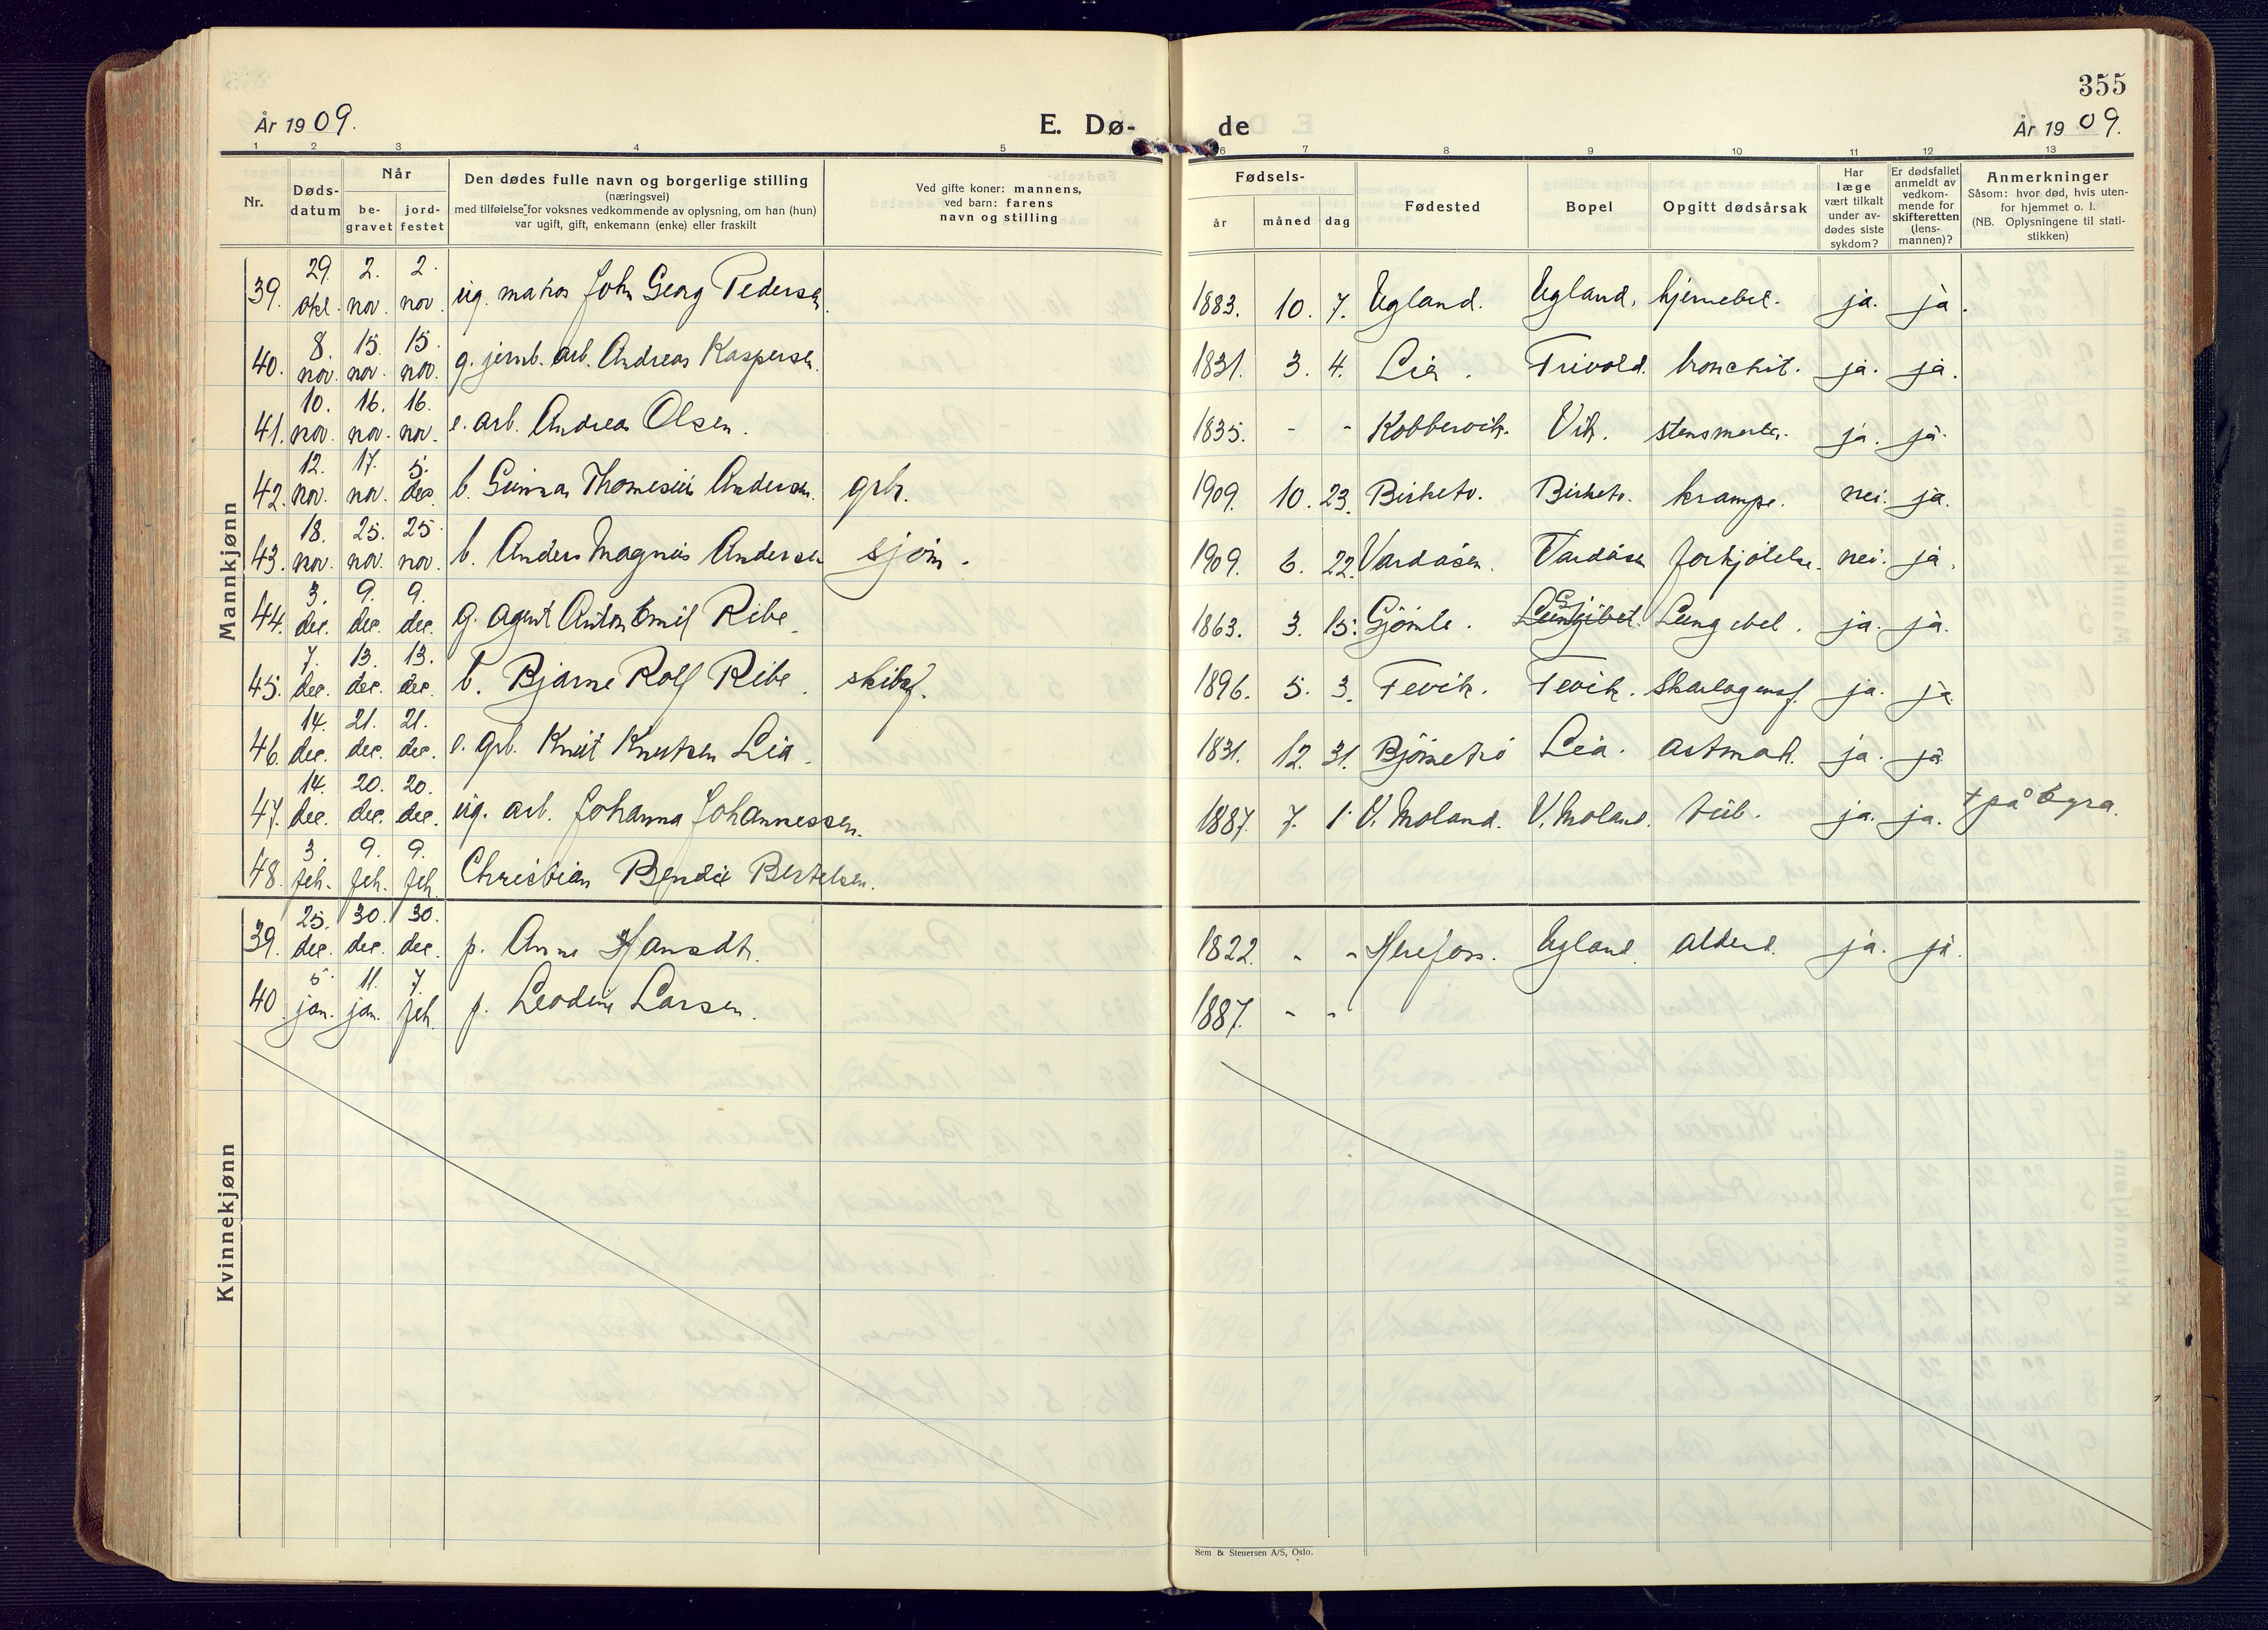 355
År 1909.
E. Dø-
de
År 1909.
1 2 3 4 5 6 7 8 9 10 11 12 13
Nr.
Døds-
datum
Når
be-
gravet
jord-
festet
Den dødes fulle navn og borgerlige stilling
(næringsvei)
med tilføielse for voksnes vedkommende av oplysning, om han (hun)
var ugift, gift, enkemann (enke) eller fraskilt
Ved gifte koner: mannens,
ved barn: farens
navn og stilling
Fødsels-
år måned dag
Fødested
Bopel
Opgitt dødsårsak
Har
læge
vært tilkalt
under av-
dødes siste
sykdom?
Er dødsfallet
anmeldt av
vedkom-
mende for
skifteretten
(lens-
mannen)?
Anmerkninger
Såsom: hvor død, hvis uten-
for hjemmet o. l.
(NB. Oplysningene til stati-
stikken)
Mannkjønn
39. 29. okt. 2. nov. 2. nov. ug. matros John Georg Pedersen. 1883. 10. 7. Ugland. Ugland. hjernebet. ja. ja.
40. 8. nov. 15. nov. 15. nov. g. jernb. arb. Andreas Kaspersen. 1831. 3. 4. Lia. Trivold. bronchit. ja. ja.
41. 10. nov. 16. nov. 16. nov. e. arb. Andreas Olsen. 1835. - - Kobbervik. Vik. stensmerter. ja. ja.
42. 12. nov. 17. nov. 5. dec. b. Gunnar Thomesius Andersen. grbr. 1909. 10. 23. Birketv. Birketv. krampe. nei. ja.
43. 18. nov. 25. nov. 25. nov. b. Anders Magnus Andersen sjøm. 1909. 6. 22. Vardåsen. Vardåsen forkjølelse. nei. ja.
44. 3. dec. 9. dec. 9. dec. g. agent Anton Emil Ribe. 1863. 3. 15. Gjömle. Lungebet. ja. ja.
45. 7. dec. 13. dec. 13. dec. b. Bjarne Rolf Ribe. skibsf. 1896. 5. 3. Fevik. Fevik. Skarlagensf. ja. ja.
46. 14. dec. 21. dec. 21. dec. e. grb. Knut Knutsen Lia. 1831. 12. 31. Bjørnetrö Lia. astmah. ja. ja
47. 14. dec. 20. dec. 20. dec. ug. arb. Johanna Johannessen. 1887. 7. 1. V. Moland. V. Moland. tub. ja. ja. + på Egra.
48. 3. feb. 9. feb. 9. feb. Christian Bendix Bertelsen.
Kvinnekjønn
39. 25. dec. 30. dec. 30. dec. p. Anne Hansdt. 1822. - - Herefoss. Ugland. alderd. ja. ja.
40. 5. jan. 11. jan. 7. feb. p. Leodine Larsen. 1887. - -
Sem & Stenersen A/S, Oslo.